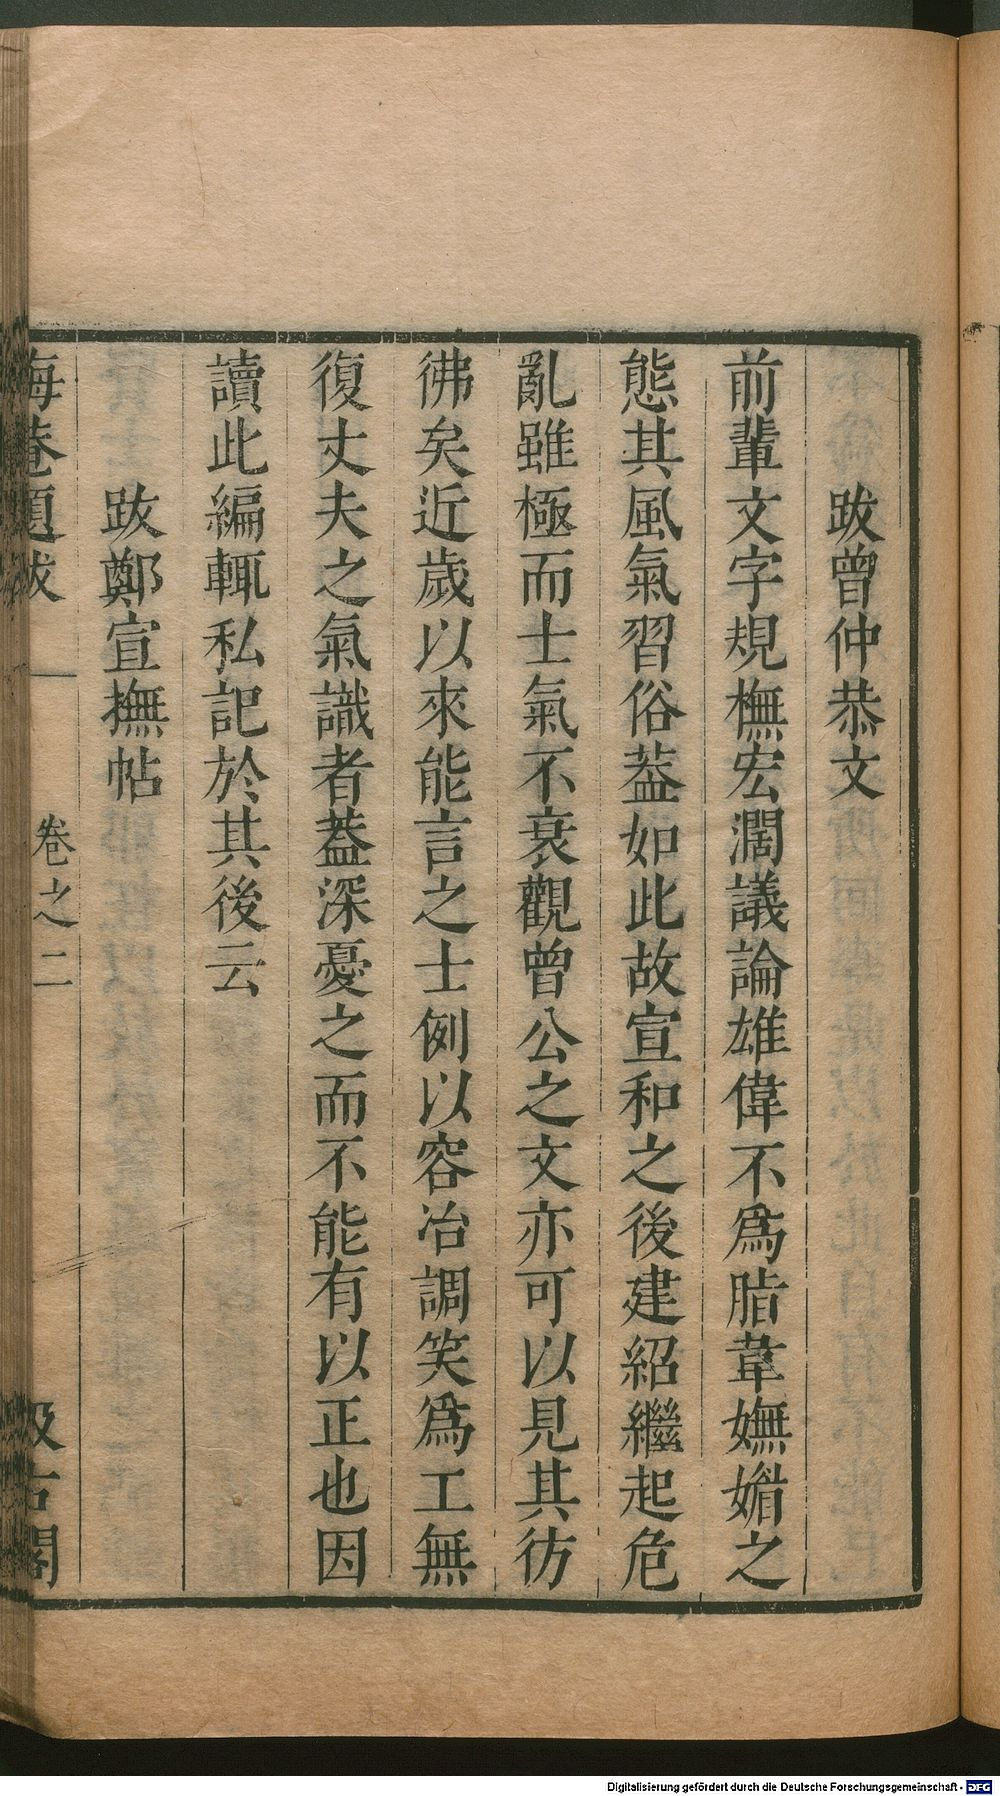 跋曾仲恭文
前輩文字規橅宏濶議論雄偉不爲脂韋嫵媚之
態其風氣習俗葢如此故宣和之後建紹繼起危
亂雖極而士氣不衰觀曾公之文亦可以見其彷
彿矣近歲以來能言之士例以容冶調笑爲工無
復丈夫之氣識者葢深憂之而不能有以正也因
讀此編輒私記於其後云
跋鄭宣撫帖
晦菴題跋 卷之二 汲古閣
Digitalisierung gefördert durch die Deutsche Forschungsgemeinschaft - DFG